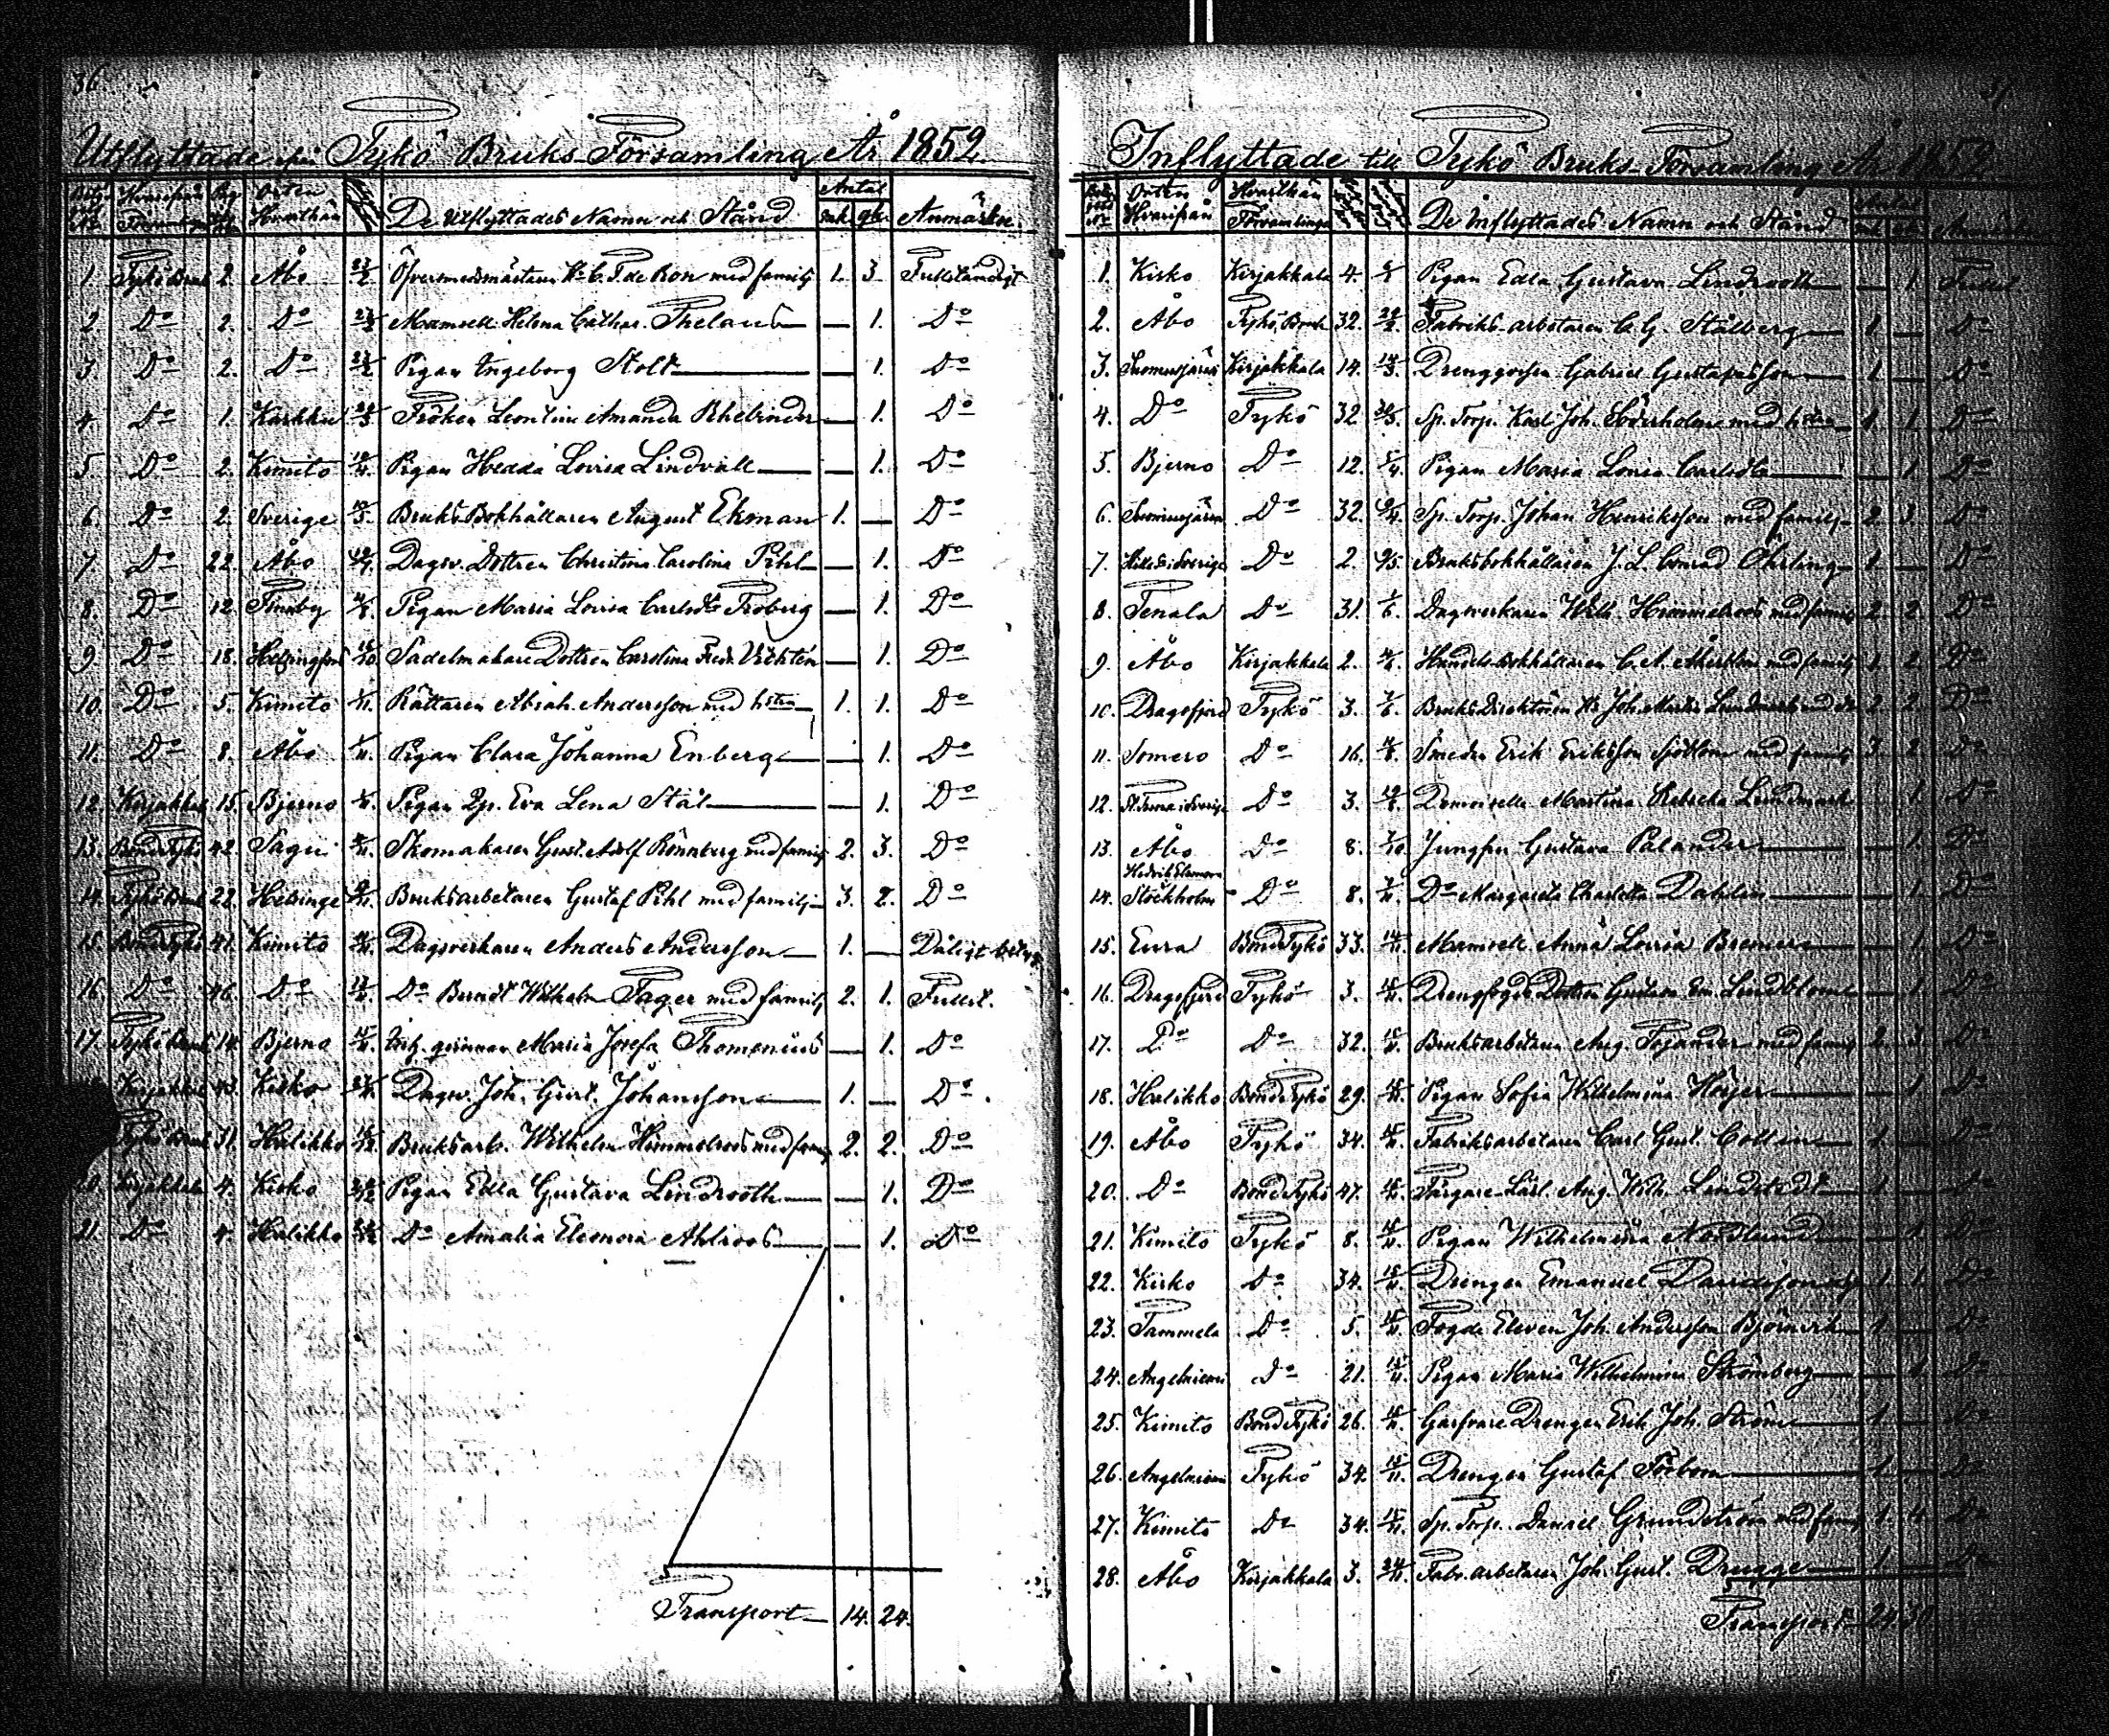 36.
Utflyttade ifrån Tykö Bruks Församling År 1852.
Hvarifrån Pag. Orten Hvarthän De Utflyttades Namn och Stånd Antal mk. qk. Anmärkn.
1. Tykö Bruk 2. Åbo 23/2 Öfversmedsmästaren Hr C. F. de Ron med familj 1. 3. Fullständigt
2. Do 2. Do 23/2 Mamsell Helena Cathar. Thelaus — 1. Do
3. Do 2. Do 23/2 Pigan Ingeborg Stolt — 1. Do
4. Do 1. Karkku Fröken Leontine Amanda Rhebinder — 1. Do
5. Do 2. Kimito Pigan Hedda Lovisa Lindvall — 1. Do
6. Do 2. Sverige Bruks Bokhållaren August Ekman 1. — Do
7. Do 22. Åbo Dagsv. Dottren Christina Carolina Pihl — 1. Do
8. Do 12. Finnby Pigan Maria Lovisa Carlsdtr Froberg — 1. Do
9. Do 18. Helsingfors Sadelmakare Dottren Carolina Fredr. — 1. Do
10. Do 5. Kimito 1/11. Rättaren Abrah. Andersson med hstru 1. 1. Do
11. Do 8. Åbo 1/11. Pigan Clara Johanna Enberg — 1. Do
12. Kirjakkala 15. Bjerno Pigan Eva Lena Stål — 1. Do
13. Bonde Tykö 42. Sagu Skomakaren Gust. Adolf Rönnberg med familj 2. 3. Do
14. Tykö Bruk 22. Helsinge Bruksarbetaren Gustaf Pihl med familj 3. 2. Do
15. Bonde Tykö 41. Kimito Dagsverkaren Anders Andersson 1. — Dåligt
16. Do 46. Do Do Berndt Wilhelm Fager med familj 2. 1. Fullst.
17. Tykö Bruk 14. Bjerno qvinnan Maria Josefa Thomenius — 1. Do
Kirjakkala 43. Kisko Dagsv. Joh. Gust. Johansson 1. — Do
Tykö Bruk 31. Halikko Bruksarb. Wilhelm Himmelroos med famj 2. 2. Do
20. Kirjakkala 4. Kisko Pigan Edla Gustava Lindrooth — 1. Do
21. Do 4. Halikko Do Amalia Eleonora Ahlroos — 1. Do
Transport 14. 24.
37
Inflyttade till Tykö Bruks Församling År 1852
Orten Hvarifrån Hvarthän Församlingen De Inflyttades Namn och Stånd Antal
1. Kisko Kirjakkala 4. Pigan Edla Gustava Lindrooth — 1. Full
2. Åbo Tykö Bruk 32. Fabriks arbetaren C. G. Stålberg 1. — Do
3. Suomusjärvi Kirjakkala 14. Drenggossen Gabriel Gustafsson 1. — Do
4. Do Tykö 32 Sp. Torp. Karl Joh. Söderholm med hstru 1. 1. Do
5. Bjerno Do 12. Pigan Maria Lovisa Carlsdtr — 1. Do
6. Suomusjärvi Do 32. Sp. Torp. Johan Henriksson med familj 2. 3. Do
7. Sverige Do 2. 9/5. Bruksbokhållaren J. L. Conrad Öhrling 1. — Do
8. Tenala Do 31. 1/6. Dagsverkaren Wilh. Himmelroos med familj 2. 2. Do
9. Åbo Kirjakkala 2. Handels bokhållaren C. A. Åkerblom med familj 1. 2. Do
10. Dragsfjerd Tykö 3. Bruks Direktören Hr Joh. Martin Lindmark 2 2. Do
11. Somero Do 16. Smeden Erik Eriksson Sjöblom med familj 3 2. Do
12. Sverige Do 3. Demoiselle Martina Lindmark 1. Do
13. Åbo Do 8. 7/10. Jungfru Gustava Palander — 1. Do
14. Hedvik Eleonora Stockholm Do 8. Do Margareta Charlotta Dahlin — 1. Do
15. Eura Bonde Tykö 33. Mamsell Anna Lovisa Bremer — 1. Do
16. Dragsfjerd Tykö 3. Drengfogde Dottren Gustava Em. Lindblom — 1. Do
17. Do Do 32. Bruksarbetaren Aug. Fojander med familj 2. 3. Do
18. Halikko Bonde Tykö 29. Pigan Sofia Wilhelmina Höijer — 1. Do
19. Åbo Tykö 34. Fabriksarbetaren Carl Gust. Collin 1. — Do
20. Do Bonde Tykö 47. Färgare Lärl. Aug. Wilh. Lindstedt 1. — Do
21. Kimito Tykö 8. Pigan Wilhelmina Nordlund — 1. Do
22. Kisko Do 34. Drengen Emanuel Davidsson 1. 1. Do
23. Tammela Do 5. Fogde Eleven Joh. Andersson 1. — Do
24. Angelniemi Do 21. Pigan Maria Wilhelmina Strömberg — 1. Do
25. Kimito Bonde Tykö 26. Garfvare Drengen Erik Joh. Ström 1. — Do
26. Angelniemi Tykö 34. Drengen Gustaf Forbom 1. — Do
27. Kimito Do 34. Sp. Torp. Daniel Grundström med famj 1. 4. Do
28. Åbo Kirjakkala 3. Fabr. arbetaren Joh. Gust. Drugge 1. — Do
Transport